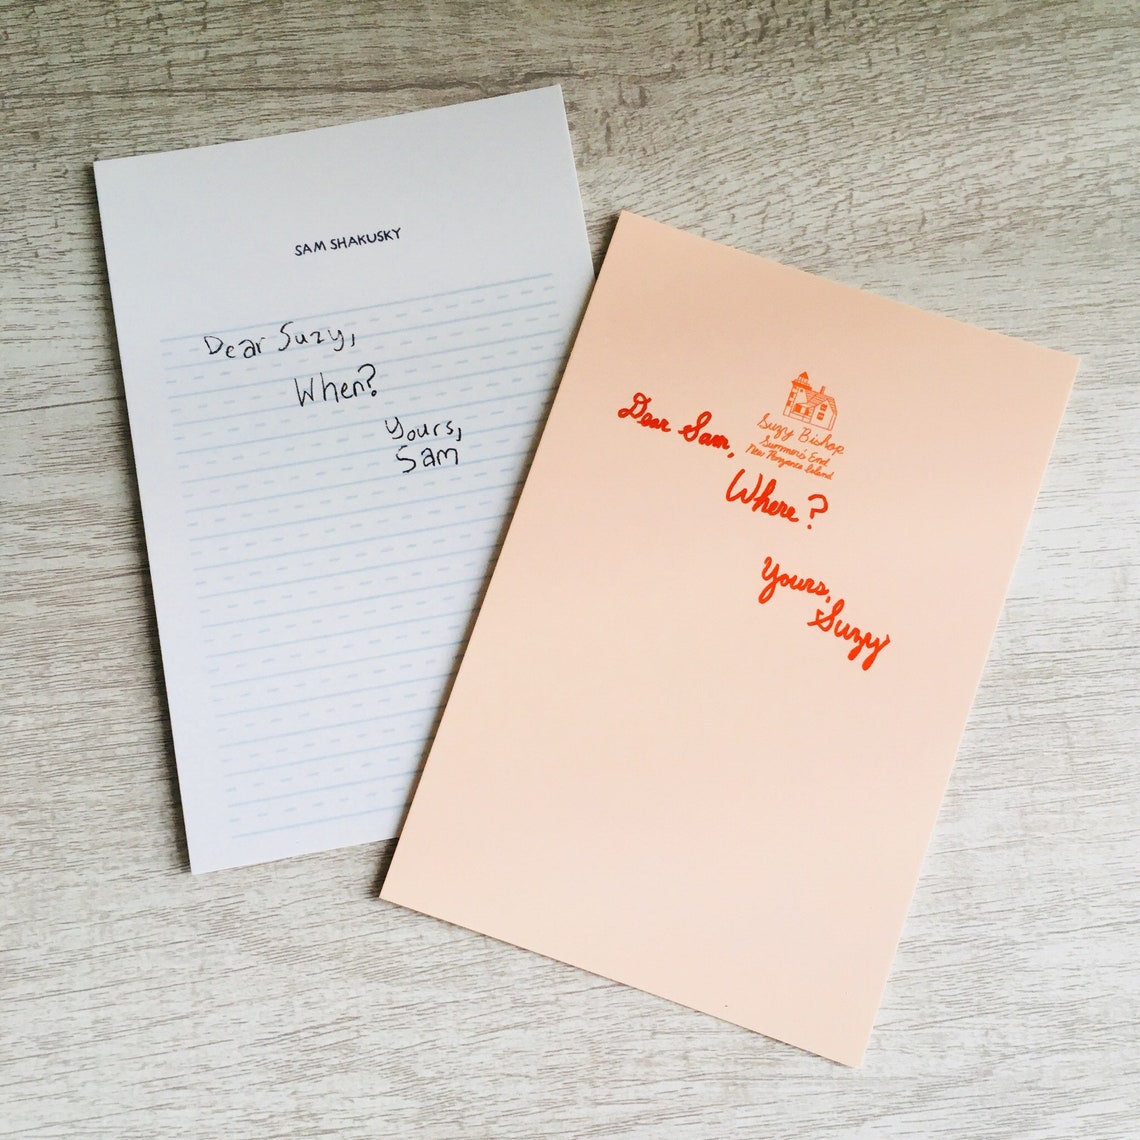 SAM SHAKUSKY
Dear Suzy,
When?
Yours,
Sam
Suzy Bishop
Summer's End
New Penzance Island
Dear Sam,
Where?
Yours,
Suzy